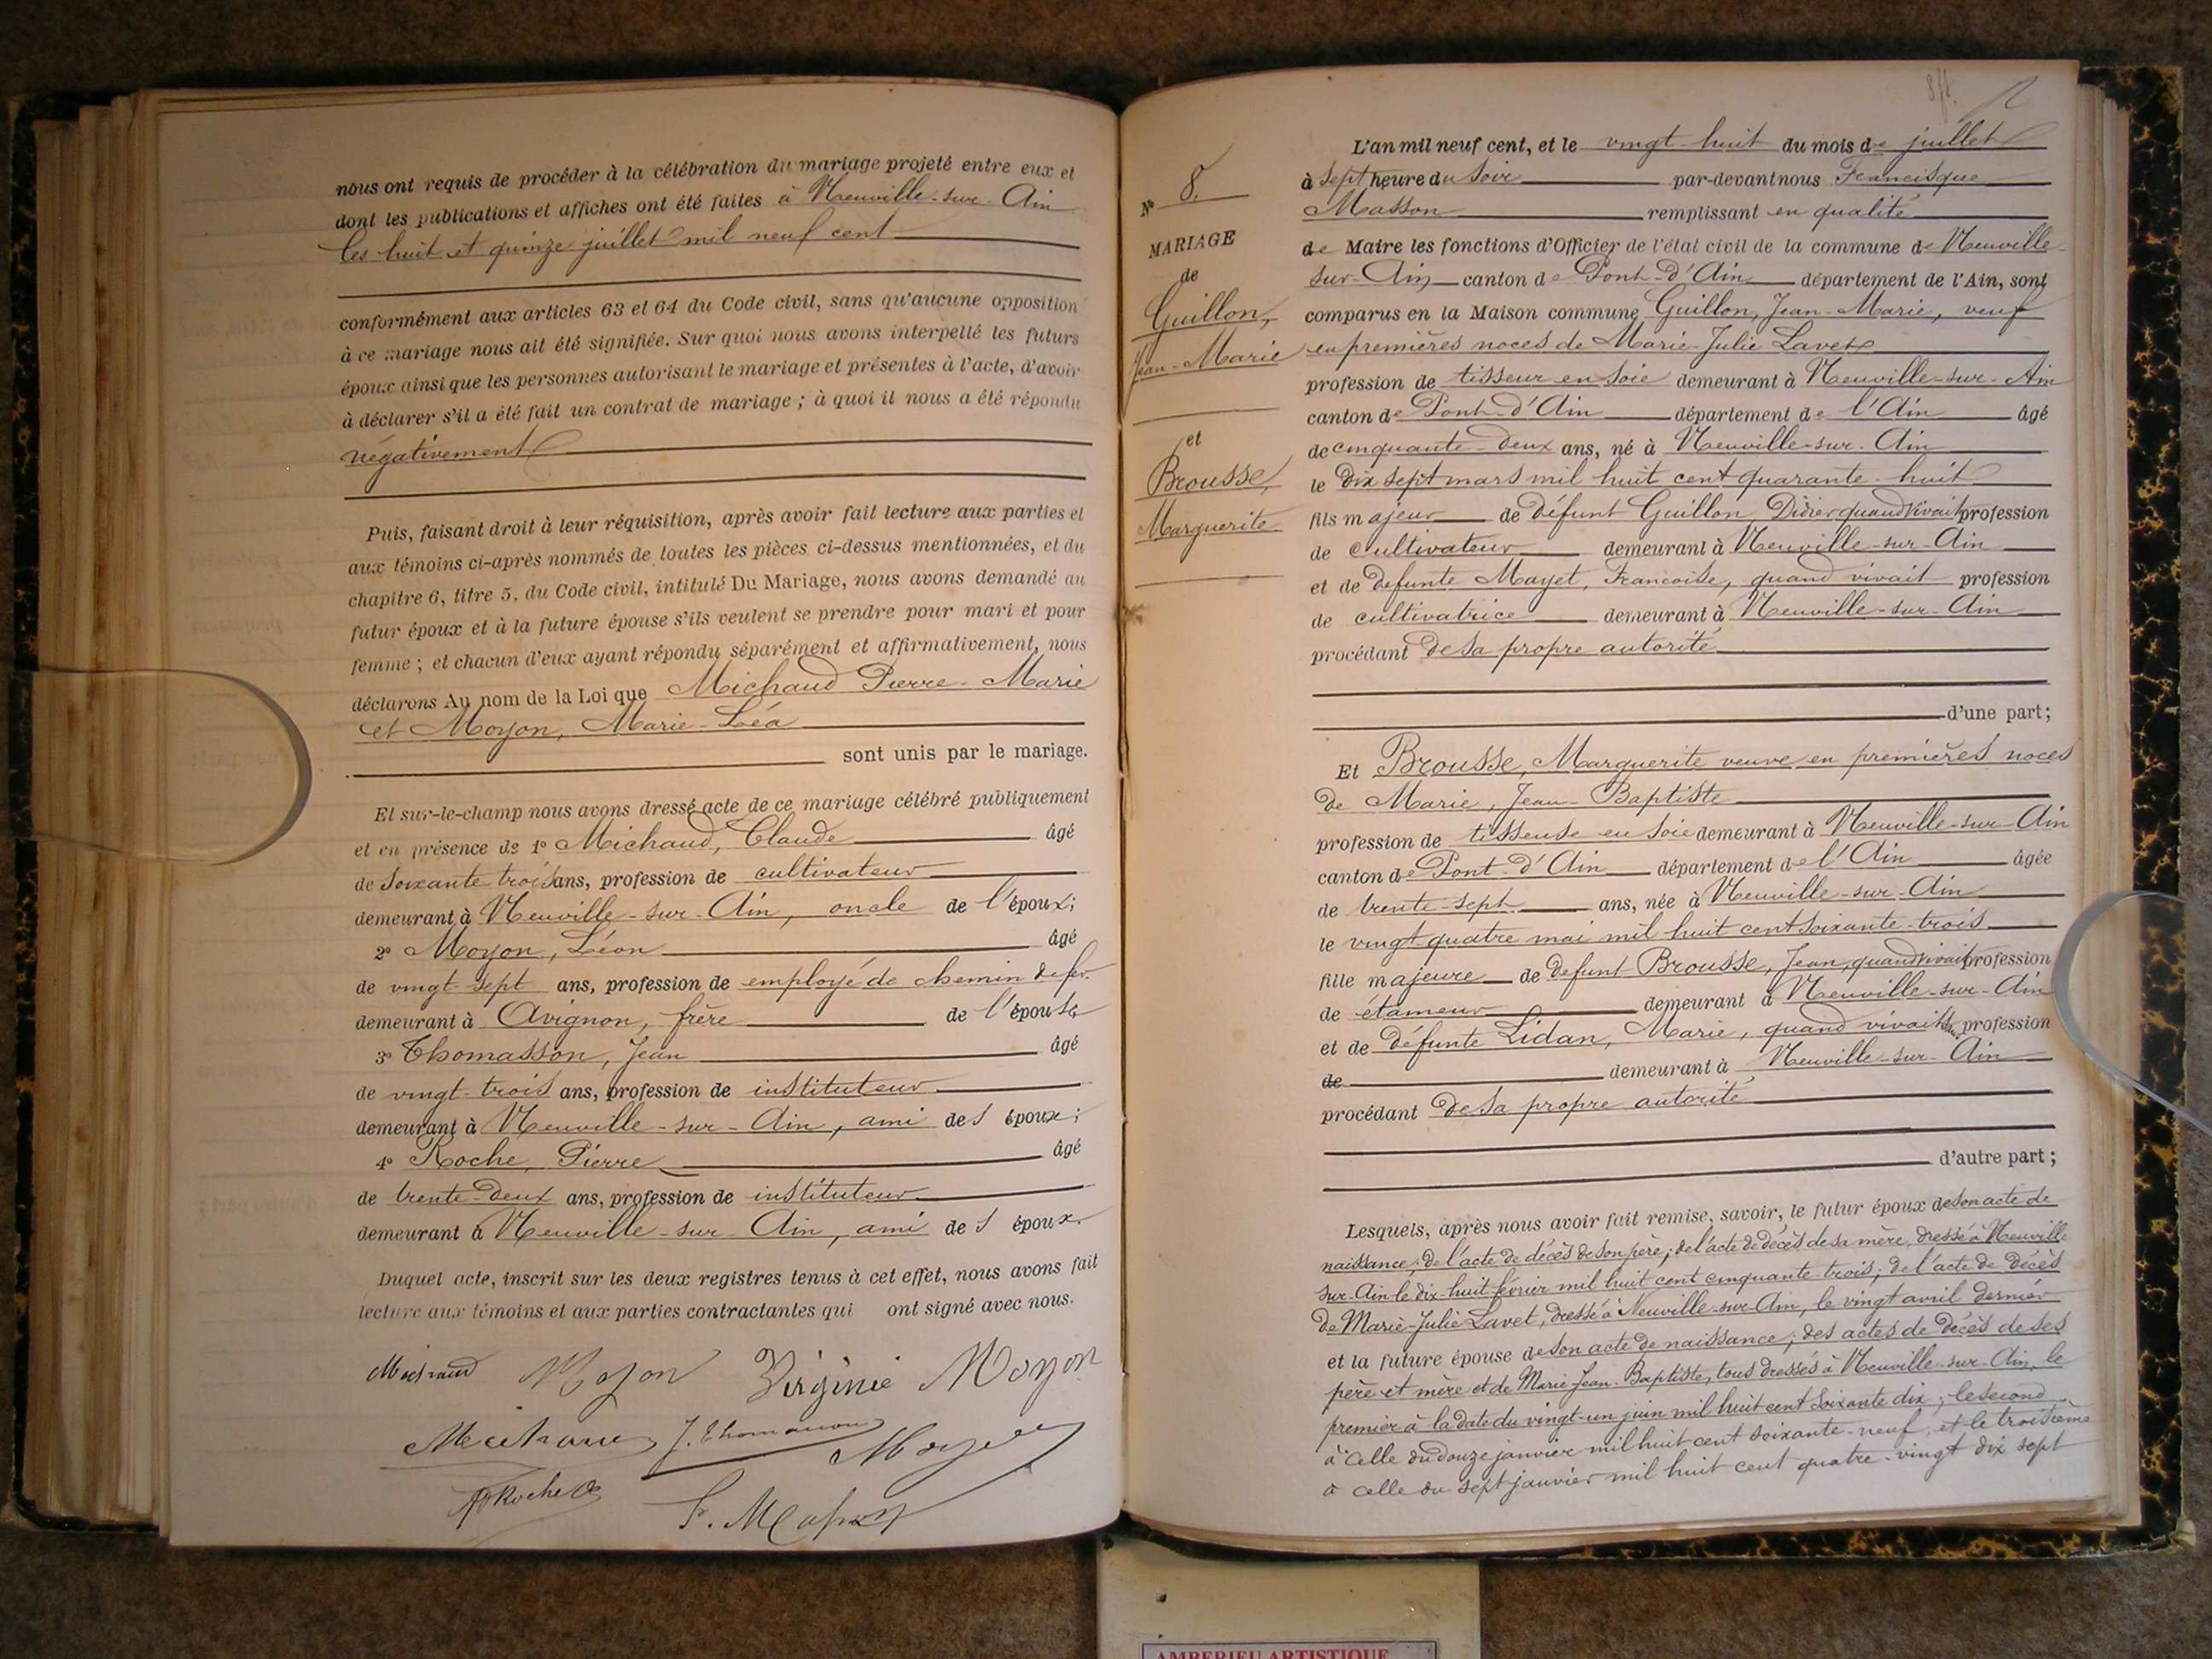 nous ont requis de procéder à la célébration du mariage projeté entre eux et
dont les publications et affiches ont été faites à Neuville-sur-Ain
les huit et quinze juillet mil neuf cent
conformément aux articles 63 et 64 du Code civil, sans qu'aucune opposition
à ce mariage nous ait été signifiée. Sur quoi nous avons interpellé les futurs
époux ainsi que les personnes autorisant le mariage et présentes à l'acte, d'avoir
à déclarer s'il a été fait un contrat de mariage ; à quoi il nous a été répondu
négativement
Puis, faisant droit à leur réquisition, après avoir fait lecture aux parties et
aux témoins ci-après nommés de toutes les pièces ci-dessus mentionnées, et du
chapitre 6, titre 5, du Code civil, intitulé Du Mariage, nous avons demandé au
futur époux et à la future épouse s'ils veulent se prendre pour mari et pour
femme ; et chacun d'eux ayant répondu séparément et affirmativement, nous
déclarons Au nom de la Loi que Michaud Pierre-Marie
et Moyon, Marie-Léa
sont unis par le mariage.
Et sur-le-champ nous avons dressé acte de ce mariage célébré publiquement
et en présence de 1° Michaud, Claude âgé
de soixante trois ans, profession de cultivateur
demeurant à Neuville-sur-Ain, oncle de l'époux;
2° Moyon, Léon âgé
de vingt-sept ans, profession de employé de chemin de fer
demeurant à Avignon, frère de l'épouse
3° Thomasson, Jean âgé
de vingt-trois ans, profession de instituteur
demeurant à Neuville-sur-Ain, ami des époux;
4° Roche, Pierre âgé
de trente-deux ans, profession de instituteur
demeurant à Neuville-sur-Ain, ami des époux.
Duquel acte, inscrit sur les deux registres tenus à cet effet, nous avons fait
lecture aux témoins et aux parties contractantes qui ont signé avec nous.
Michaud Moyon Virginie Moyon
Michaud J. Thomasson Moyon
Roche
F. Masson
N° 8.
MARIAGE
de
Guillon,
Jean-Marie
et
Brousse,
Marguerite
L'an mil neuf cent, et le vingt-huit du mois de juillet
à sept heure du soir par-devant nous Francisque
Masson remplissant en qualité
de Maire les fonctions d'Officier de l'état civil de la commune de Neuville-
sur-Ain canton de Pont-d'Ain département de l'Ain, sont
comparus en la Maison commune Guillon, Jean-Marie, veuf
en premières noces de Marie-Julie Lavet
profession de tisseur en soie demeurant à Neuville-sur-Ain
canton de Pont-d'Ain département de l'Ain âgé
de cinquante-deux ans, né à Neuville-sur-Ain
le dix sept mars mil huit cent quarante-huit
fils majeur de défunt Guillon Didier quand vivait profession
de cultivateur demeurant à Neuville-sur-Ain
et de défunte Mayet, Francoise, quand vivait profession
de cultivatrice demeurant à Neuville-sur-Ain
procédant de sa propre autorité
d'une part;
Et Brousse, Marguerite veuve en premières noces
de Marie, Jean-Baptiste
profession de tisseuse en soie demeurant à Neuville-sur-Ain
canton de Pont-d'Ain département de l'Ain âgée
de trente-sept ans, née à Neuville-sur-Ain
le vingt-quatre mai mil huit cent soixante-trois
fille majeure de défunt Brousse, Jean, quand vivait profession
de étameur demeurant à Neuville-sur-Ain
et de défunte Lidan, Marie, quand vivait sans profession
de demeurant à Neuville-sur-Ain
procédant de sa propre autorité
d'autre part ;
Lesquels, après nous avoir fait remise, savoir, le futur époux de son acte de
naissance; de l'acte de décès de son père; de l'acte de décès de sa mère, dressé à Neuville
sur-Ain le dix huit février mil huit cent cinquante-trois; de l'acte de décès
de Marie-Julie Lavet, dressé à Neuville-sur-Ain, le vingt avril dernier
et la future épouse de son acte de naissance; des actes de décès de ses
père et mère et de Marie Jean-Baptiste, tous dressés à Neuville-sur-Ain, le
premier à la date du vingt-un juin mil huit cent soixante dix; le second
à celle du douze janvier mil huit cent soixante-neuf, et le troisième
à celle du sept janvier mil huit cent quatre-vingt dix sept
AMBERIEU ARTISTIQUE